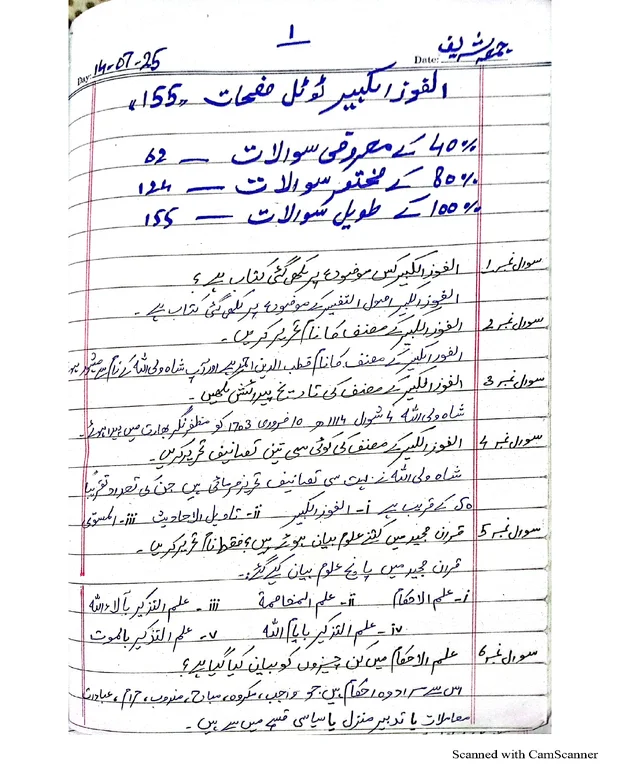 ۱
Day: 14-07-25
Date: جمعہ شریف
الفوز الکبیر ٹوٹل صفحات "155"
40% کے معروضی سوالات — 62
80% کے مختصر سوالات — 124
100% کے طویل سوالات — 155
سوال نمبر 1 الفوز الکبیر کس موضوع پر لکھی گئی کتاب ہے ؟
الفوز الکبیر اصول التفسیر کے موضوع پر لکھی گئی کتاب ہے ۔
سوال نمبر 2 الفوز الکبیر کے مصنف کا نام تحریر کریں ۔
الفوز الکبیر کے مصنف کا نام قطب الدین احمد ہے اور آپ شاہ ولی اللہ کے نام سے مشہور ہیں
سوال نمبر 3 الفوز الکبیر کے مصنف کی تاریخ پیدائش لکھیں ۔
شاہ ولی اللہ 4 شوال 1114ھ 10 فروری 1703 کو مظفر نگر بھارت میں پیدا ہوئے ۔
سوال نمبر 4 الفوز الکبیر کے مصنف کی کوئی سی تین تصانیف تحریر کریں ۔
شاہ ولی اللہ نے بہت سی تصانیف تحریر فرمائی ہیں جن کی تعداد تقریباً
50 کے قریب ہے i- الفوز الکبیر ii- تاویل الاحادیث iii- المسوّی
سوال نمبر 5 قرآن مجید میں کتنے علوم بیان ہوئے ہیں ؟ فقط نام تحریر کریں ۔
قرآن مجید میں پانچ علوم بیان کیے گئے:۔
i- علم الاحکام ii- علم المخاصمۃ iii- علم التذکیر بآلاء اللہ
iv- علم التذکیر بایام اللہ v- علم التذکیر بالموت
سوال نمبر 6 علم الاحکام میں کن چیزوں کو بیان کیا گیا ہے ؟
اس سے مراد وہ احکام ہیں جو واجب، مکروہ، مباح، مندوب، حرام، عبادات
معاملات یا تدبیر منزل یا سیاسی قسم میں سے ہیں ۔
Scanned with CamScanner